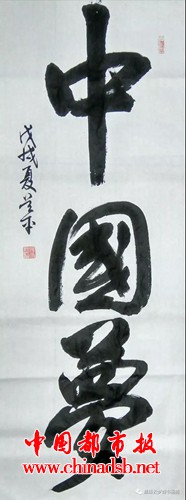 中國夢
戊戌夏
中国都市报
www.chinadsb.net